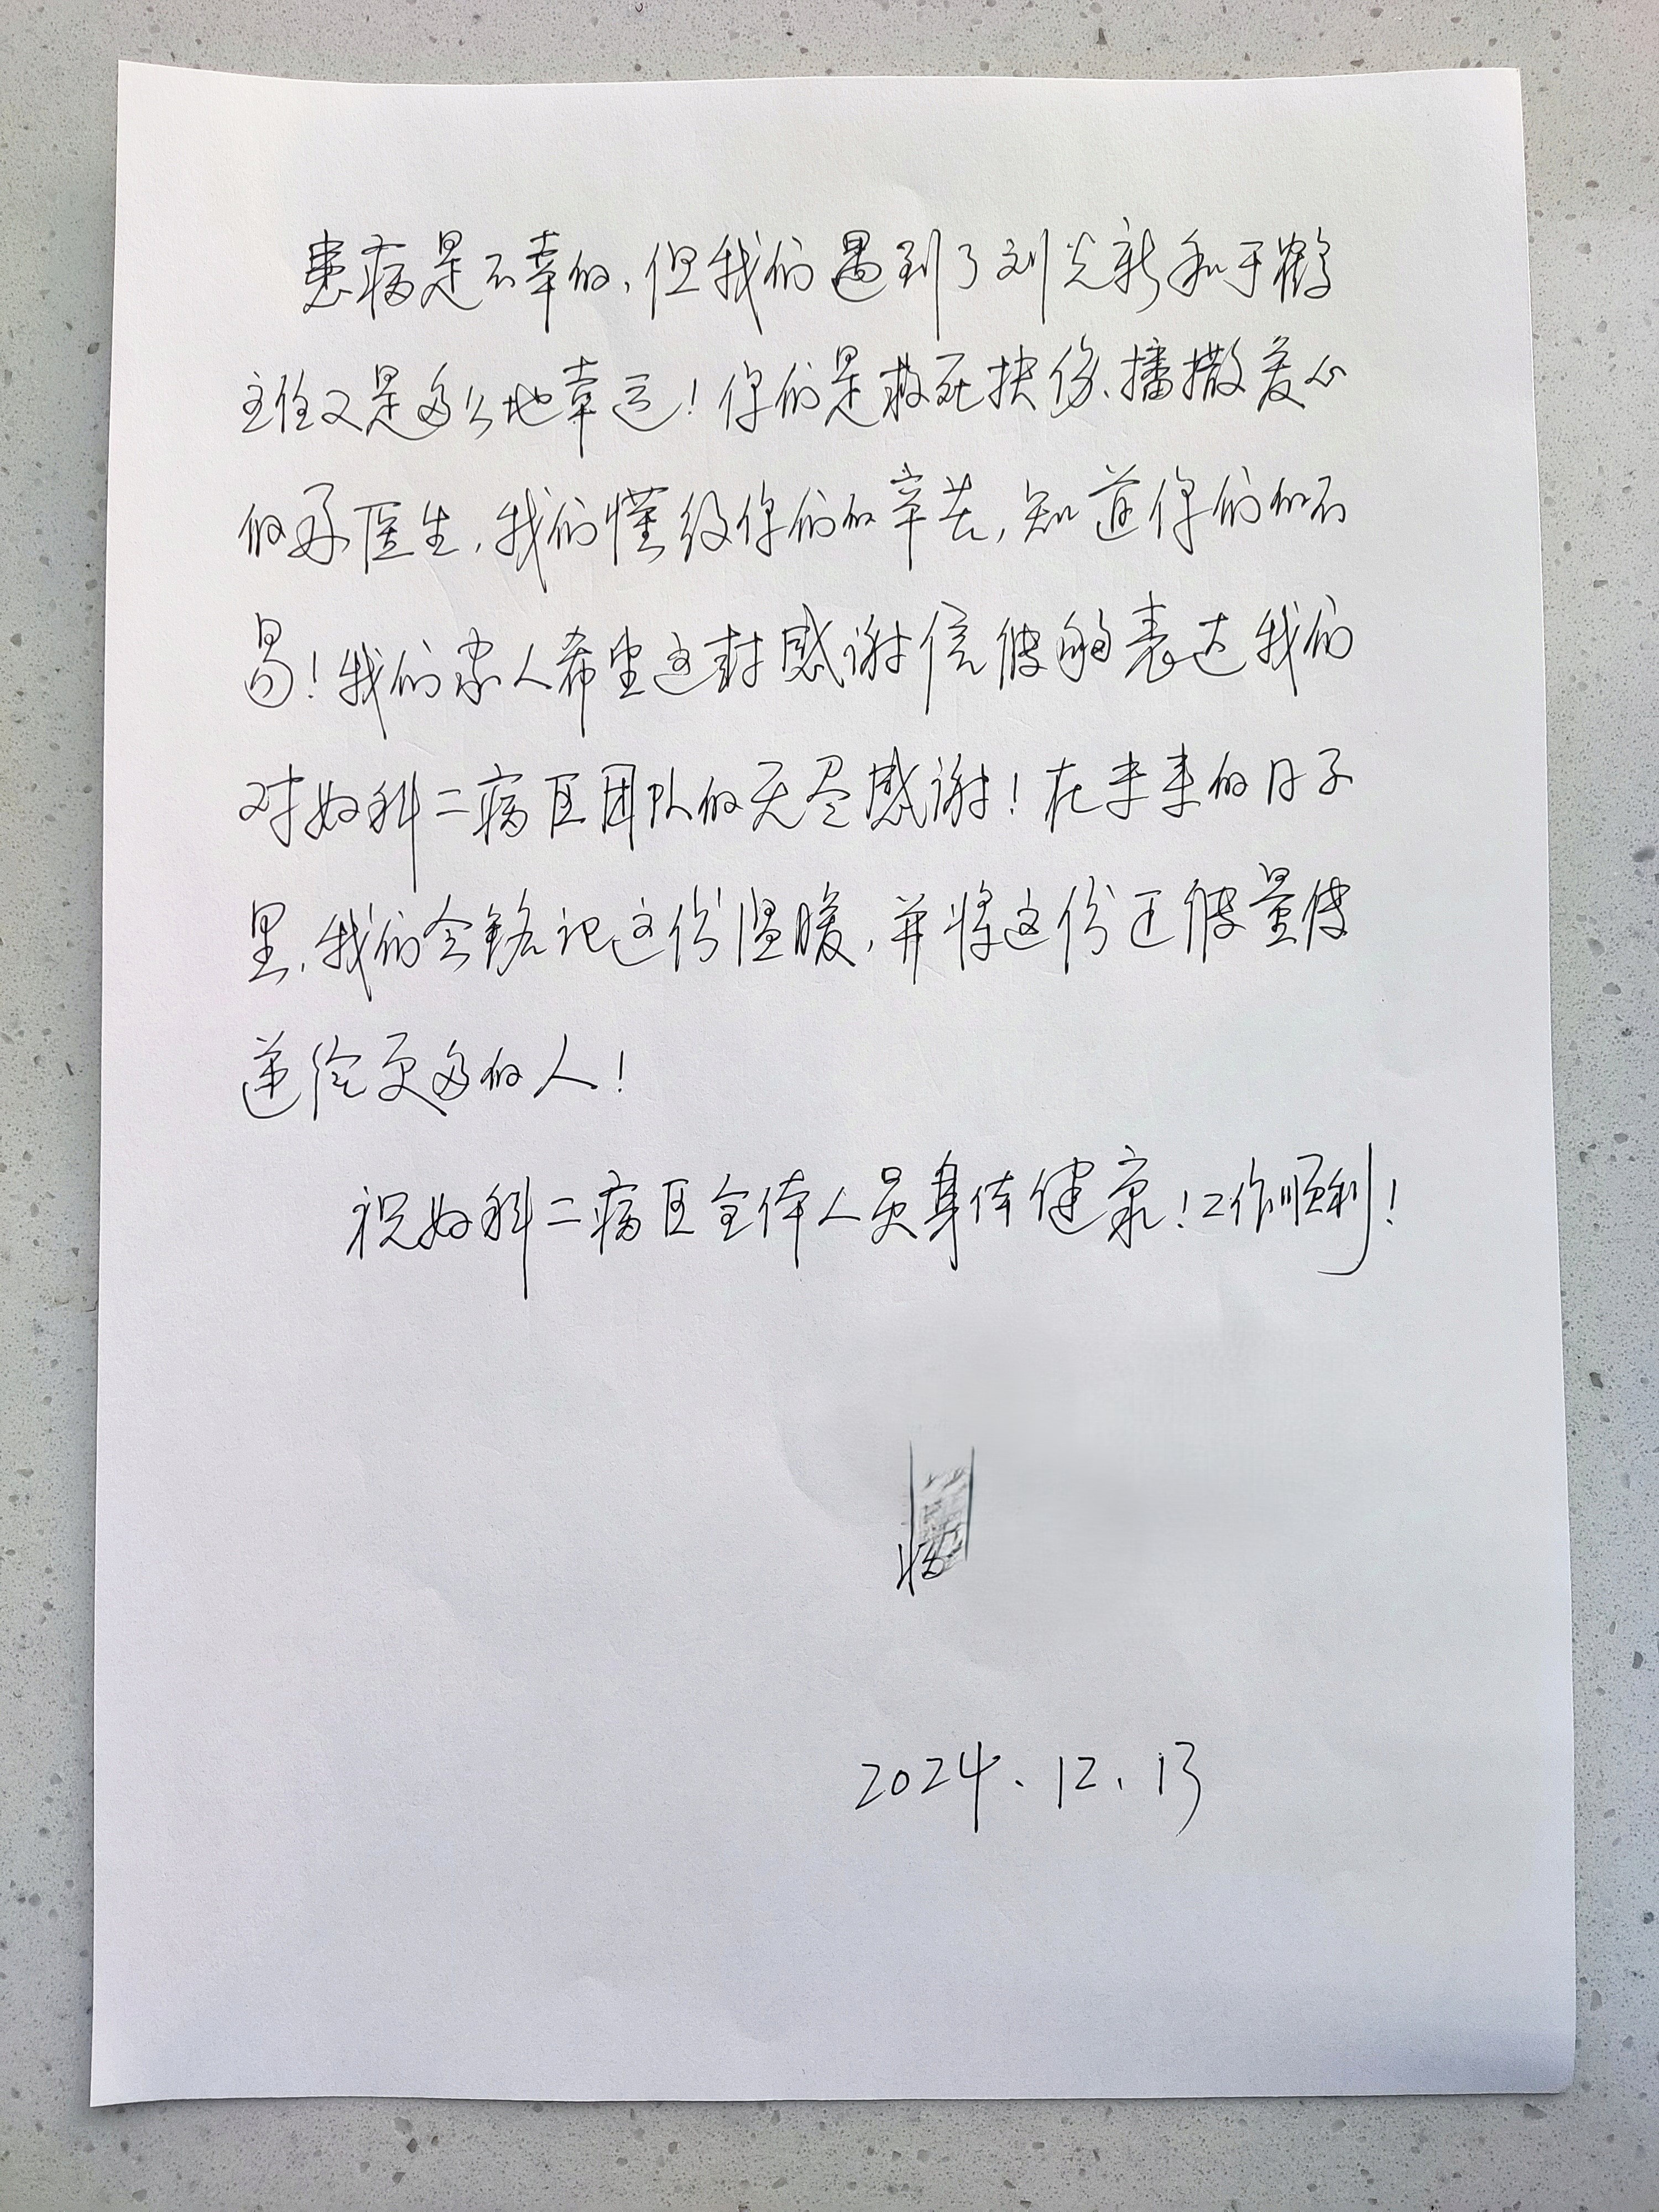 患病是不幸的,但我们遇到了刘光新和于鹤
主任又是多么地幸运!你们是救死扶伤、播撒爱心
的好医生,我们懂得你们的辛苦,知道你们的不
易!我们家人希望这封感谢信能够表达我们
对妇科二病区团队的无尽感谢!在未来的日子
里,我们会铭记这份温暖,并将这份正能量传
递给更多的人!
祝妇科二病区全体人员身体健康!工作顺利!
2024.12.13